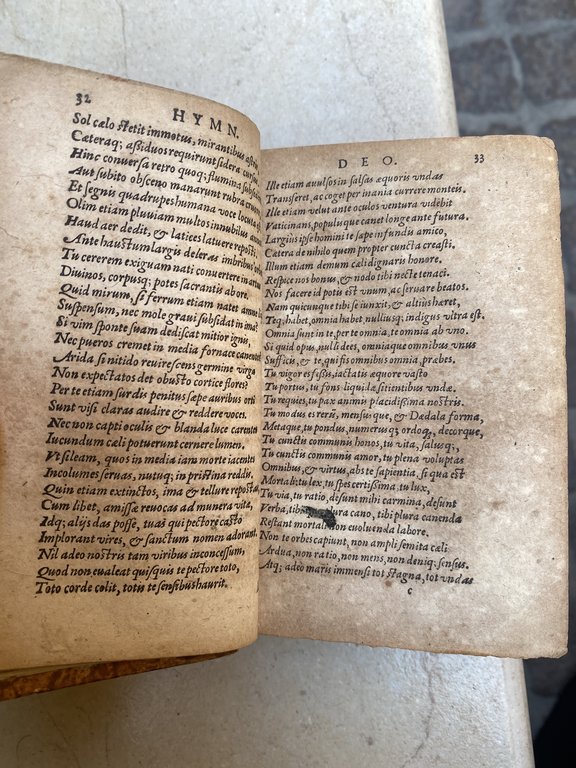 32
HYMN.
Sol cælo stetit immotus, mirantibus
Cæteraq; assiduos requirunt sidera
Hinc conversa retro quoq; flumina
Aut subito obscæno manarunt rubra
Et segnis quadrupes humana voce
Olim etiam pluviam multos innubibus
Haud aer dedit, & latices latuere reposti,
Ante haustum largis deleras imbribus
Tu cererem exiguam nati convertere in
Divinos, corpusq; potes sacrantis ab ore.
Quid mirum, si ferrum etiam nates
Suspensum, nec mole gravi subsidat in
Si vim sponte suam dediscat mitior ignis,
Nec pueros cremet in media fornace
Arida si nitido revirescens germine virga
Non expectatos det obusto cortice flores?
Per te etiam surdis penitus sæpe auribus orti
Sunt visi claras audire & reddere voces.
Nec non capti oculis & blanda luce carentes
Iucundum cæli potuerunt cernere lumen.
Vt sileam, quos in media iam morte iacenteis
Incolumes servas, nutuq; in pristina reddis.
Quin etiam extinctos, ima & tellure repostos
Cum libet, amissæ revocas ad munera vitæ,
Idq; alijs das posse, tuas qui pectore casto
Implorant vires, & sanctum nomen adorant.
Nil adeo nostris tam viribus inconcessum,
Quod non evaleat quisquis te pectore toto,
Toto corde colit, totis te sensibus haurit.
DEO.
33
Ille etiam avulsos in salsas æquoris vndas
Transferet, ac coget per inania currere monteis.
Ille etiam velut ante oculos ventura videbit
Vaticinans, populuque canet longe ante futura.
Largius ipse homini te sæpe infundis amico,
Cætera de nihilo quem propter cuncta creasti,
Illum etiam demum cæli dignaris honore.
Respice nos bonus, & nodo tibi necte tenaci.
Nos facere id potis est vnum, ac servare beatos.
Nam quicunque tibi se iunxit, & altius hæret,
Teq; habet, omnia habet nulliusq; indigus vltra est.
Omnia sunt in te, per te omnia, te omnia ab vno.
Si quid opus, nulli dees, omniaque omnibus vnus
Sufficis, & te, qui fis omnibus omnia, præbes.
Tu vigor es fessis, iactatis æquore vasto
Tu portus, tu fons liquidæ sitientibus vndæ.
Tu requies, tu pax animi placidissima nostri.
Tu modus es rerū, mensuque, & Dædala forma,
Metaque, tu pondus, numerusq; ordoq, decorque,
Tu cunctis communis honos, tu vita, salusq;,
Tu cunctis communis amor, tu plena voluptas
Omnibus, & virtus, abs te sapientia, si qua est
Mortali: tu lex, tu spes certissima, tu lux,
Tu via, tu ratio, desunt mihi carmina, desunt
Verba, tibi cano, tibi plura canenda
Restant mortali non evoluenda labore.
Non te orbes capiunt, non ampli semita cæli
Ardua, non ratio, non mens, non deniq; sensus.
Atq; adeo maris immensi tot stagna, tot vndas
c